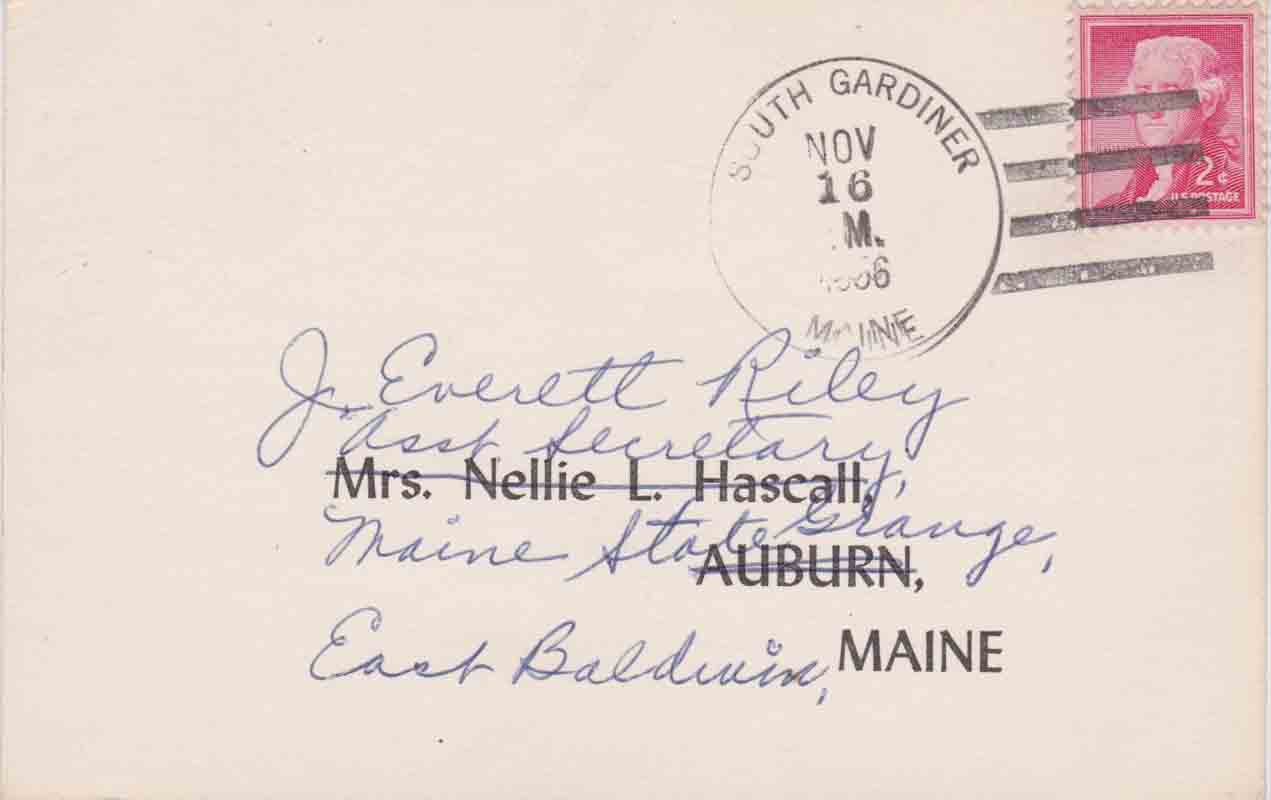 SOUTH GARDINER
NOV
16
M.
MAINE
2¢
U.S. POSTAGE
J. Everett Riley
Asst Secretary,
Mrs. Nellie L. Hascall,
Maine State Grange,
AUBURN,
East Baldwin, MAINE